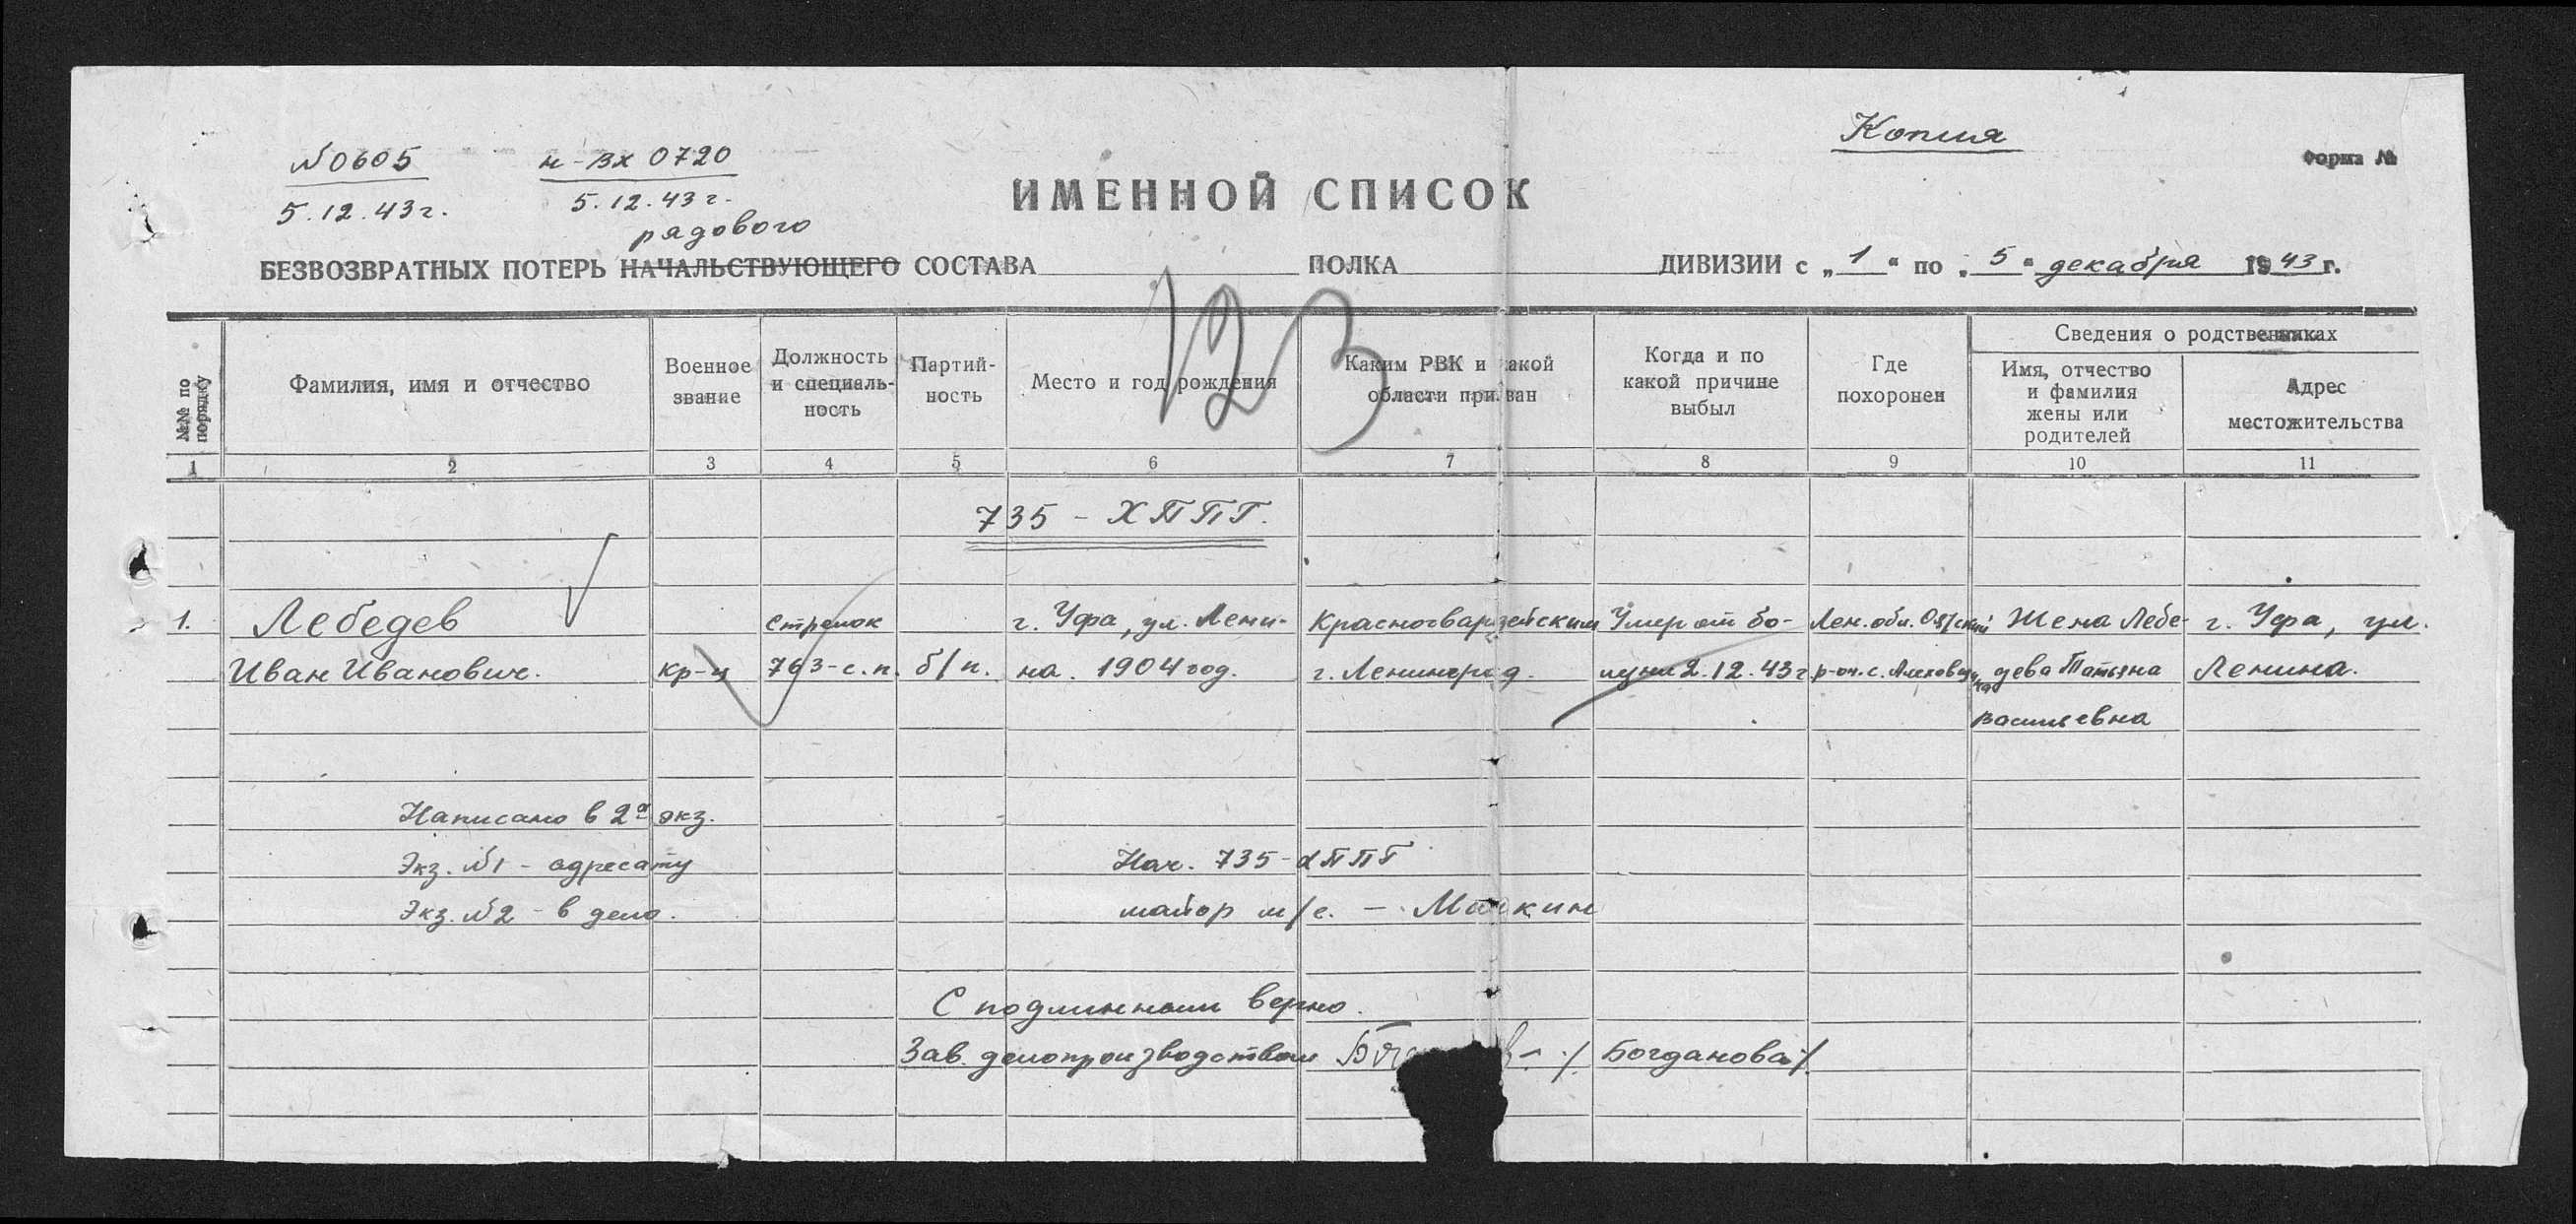 Копия
№0605
н-вх 0720
Форма №
5.12.43г.
5.12.43г.
ИМЕННОЙ СПИСОК
рядового
БЕЗВОЗВРАТНЫХ ПОТЕРЬ НАЧАЛЬСТВУЮЩЕГО СОСТАВА ПОЛКА ДИВИЗИИ с „1“ по „5“ декабря 1943 г.
123
№№ по порядку
Фамилия, имя и отчество
Военное звание
Должность и специаль-ность
Партий-ность
Место и год рождения
Каким РВК и какой области призван
Когда и по какой причине выбыл
Где похоронен
Сведения о родственниках
Имя, отчество и фамилия жены или родителей
Адрес местожительства
1 2 3 4 5 6 7 8 9 10 11
735 - ХППГ.
1. Лебедев стрелок г. Уфа, ул. Лени- Красногвардейским Умер от бо- Лен. обл. Оятский Жена Лебе- г. Уфа, ул.
Иван Иванович. кр-ц 763-с.п. б/п. на. 1904 год. г. Ленинград. лезни 2.12.43г р-он. с. Алеховщина дева Татьяна Ленина.
Васильевна
Написано в 2х экз.
Экз. №1 - адресату Нач. 735-ХППГ
Экз. №2 - в дело. майор м/с. -
С подлинным верно.
Зав. делопроизводством /Богданова/.